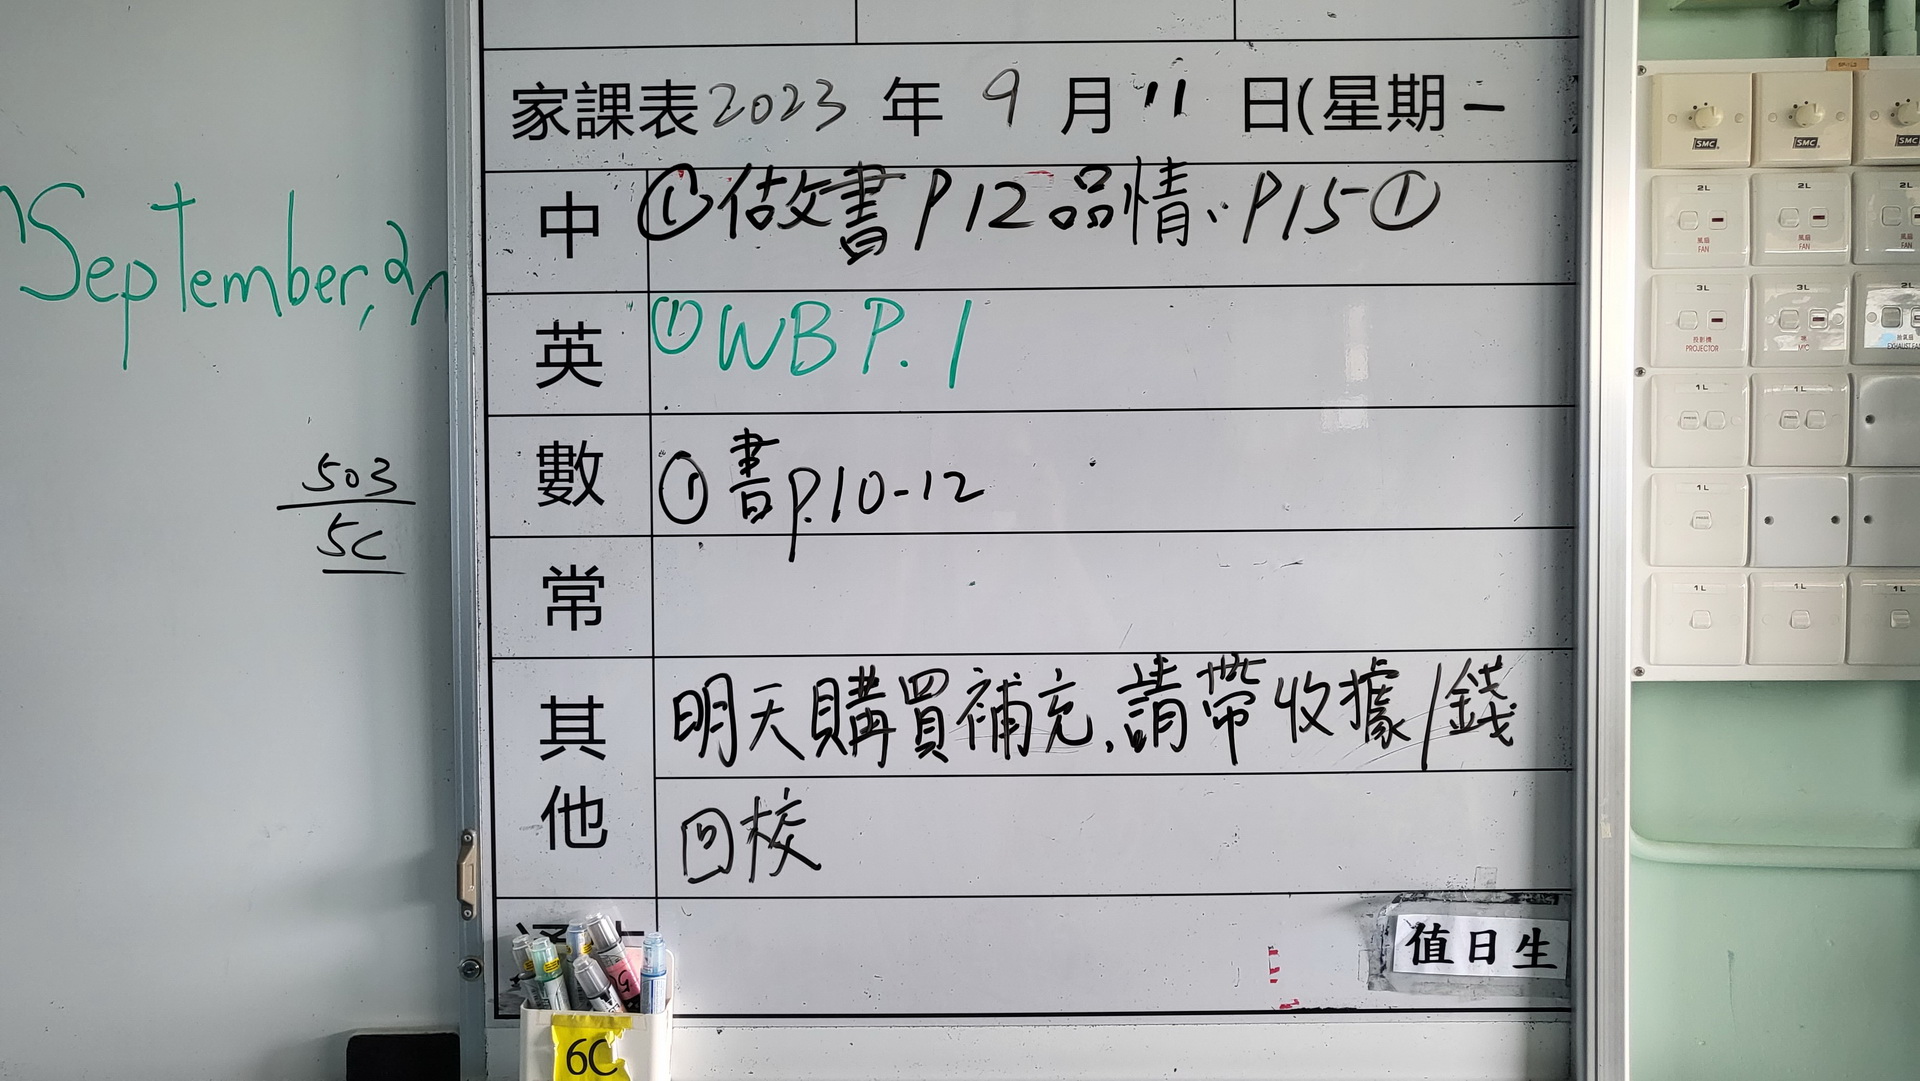 September, 2
503
5C
家課表 2023 年 9 月 11 日(星期一
中 ① 做書 P12 品情、P15 ①
英 ① WB P.1
數 ① 書 P.10-12
常
其他 明天購買補充,請帶收據/錢
回校
值日生
6C
SMC SMC SMC
2L 2L 2L
風扇 風扇
FAN FAN FAN
3L 3L 2L
投影機 咪 抽氣扇
PROJECTOR MIC EXHAUST FAN
1L 1L
1L
1L 1L 1L